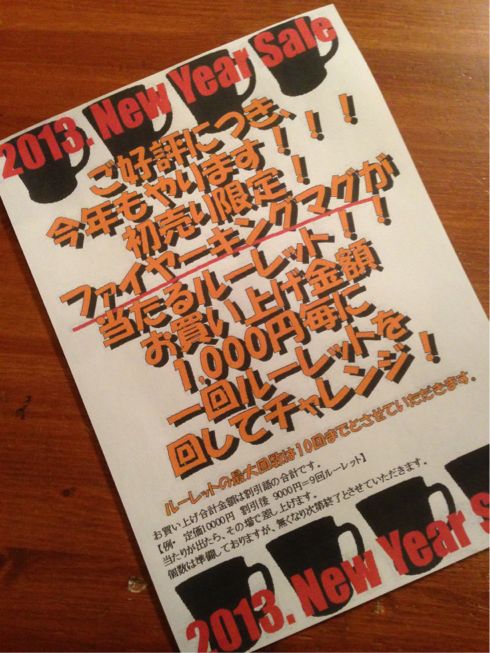 2013. New Year Sale
ご好評につき、
今年もやります！！！
初売り限定！
ファイヤーキングマグが
当たるルーレット！！
お買い上げ金額
1,000円毎に
一回ルーレットを
回してチャレンジ！
ルーレットの最大回数は10回までとさせていただきます。
お買い上げ合計金額は割引語の合計です。
【例・ 定価10000円 割引後 9000円＝9回ルーレット】
当たりが出たら、その場で差し上げます。
個数は準備しておりますが、無くなり次第終了とさせていただきます。
2013. New Year Sa